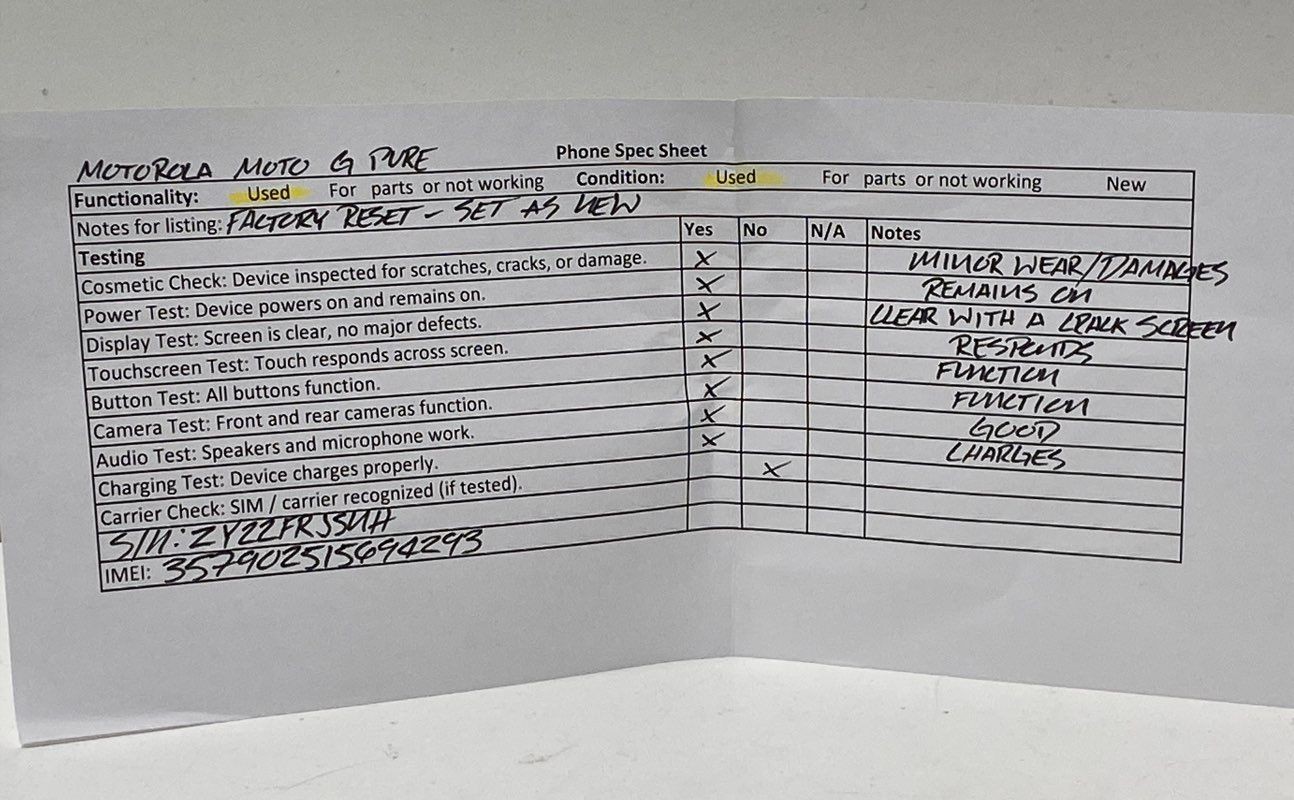 MOTOROLA MOTO G PURE Phone Spec Sheet
Functionality: Used For parts or not working Condition: Used For parts or not working New
Notes for listing: FACTORY RESET - SET AS NEW
Testing Yes No N/A Notes
Cosmetic Check: Device inspected for scratches, cracks, or damage. X MINOR WEAR/DAMAGES
Power Test: Device powers on and remains on. X REMAINS ON
Display Test: Screen is clear, no major defects. X CLEAR WITH A CRACK SCREEN
Touchscreen Test: Touch responds across screen. X RESPONDS
Button Test: All buttons function. X FUNCTION
Camera Test: Front and rear cameras function. X FUNCTION
Audio Test: Speakers and microphone work. X GOOD
Charging Test: Device charges properly. X CHARGES
Carrier Check: SIM / carrier recognized (if tested). X
S/N:
IMEI: 357902515694293